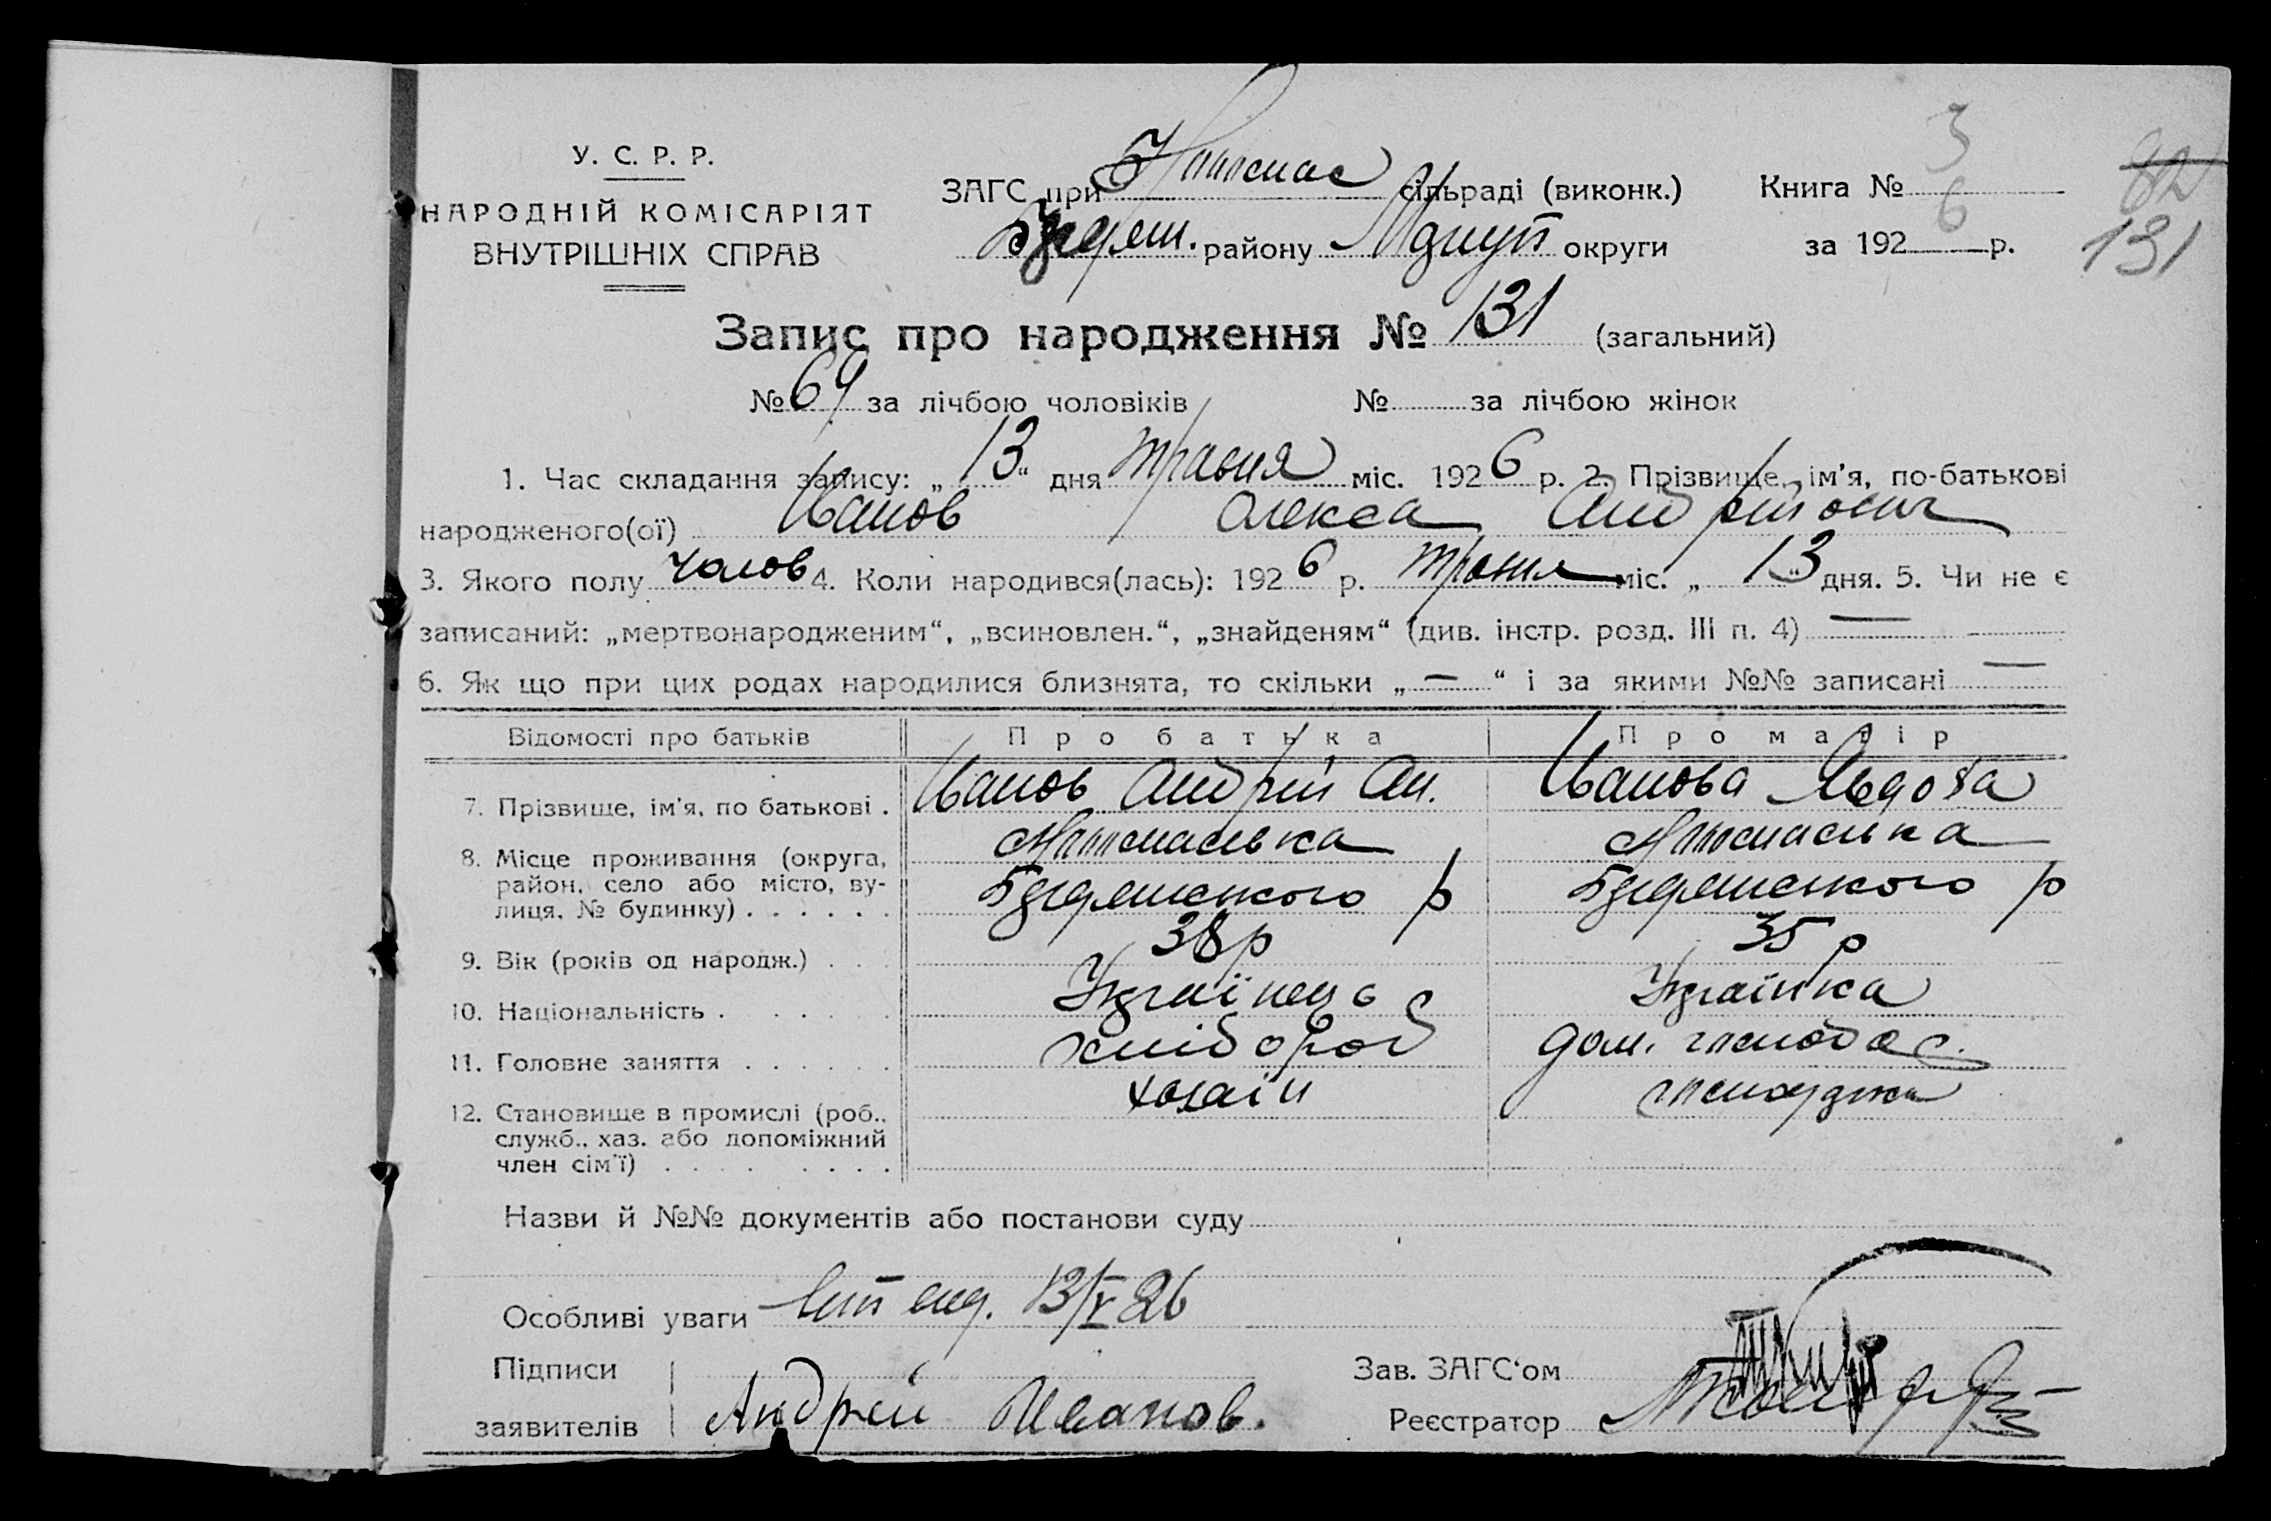 У. С. Р. Р.
НАРОДНІЙ КОМІСАРІЯТ
ВНУТРІШНІХ СПРАВ
ЗАГС при сільраді (виконк.)
району округи
Книга № 3
за 192 6 р.
82
131
Запис про народження № 131 (загальний)
№ 69 за лічбою чоловіків № за лічбою жінок
1. Час складання запису: „ 13 “ дня травня міс. 192 6 р. 2. Прізвище, ім'я, по-батькові
народженого(ої) Иванов Олекса Андрійович
3. Якого полу чолов 4. Коли народився(лась): 192 6 р. травня міс. „ 13 “ дня. 5. Чи не є
записаний: „мертвонародженим“, „всиновлен.“, „знайденям“ (див. інстр. розд. III п. 4) —
6. Як що при цих родах народилися близнята, то скільки „ — “ і за якими №№ записані —
Відомості про батьків Про батька Про матір
7. Прізвище, ім'я, по батькові . Иванов Андрій Ан. Иванова
8. Місце проживання (округа,
район, село або місто, ву-
лиця, № будинку) . . . . . . р р
9. Вік (років од народж.) . . . 38 р 35 р
10. Національність . . . . . . Українець Українка
11. Головне заняття . . . . . . хлібороб дом. господар.
12. Становище в промислі (роб., хозаін
служб., хаз. або допоміжний
член сім'ї) . . . . . . . . .
Назви й №№ документів або постанови суду
Особливі уваги 13/V 26
Підписи
заявителів Андрей Иванов.
Зав. ЗАГС'ом
Реєстратор